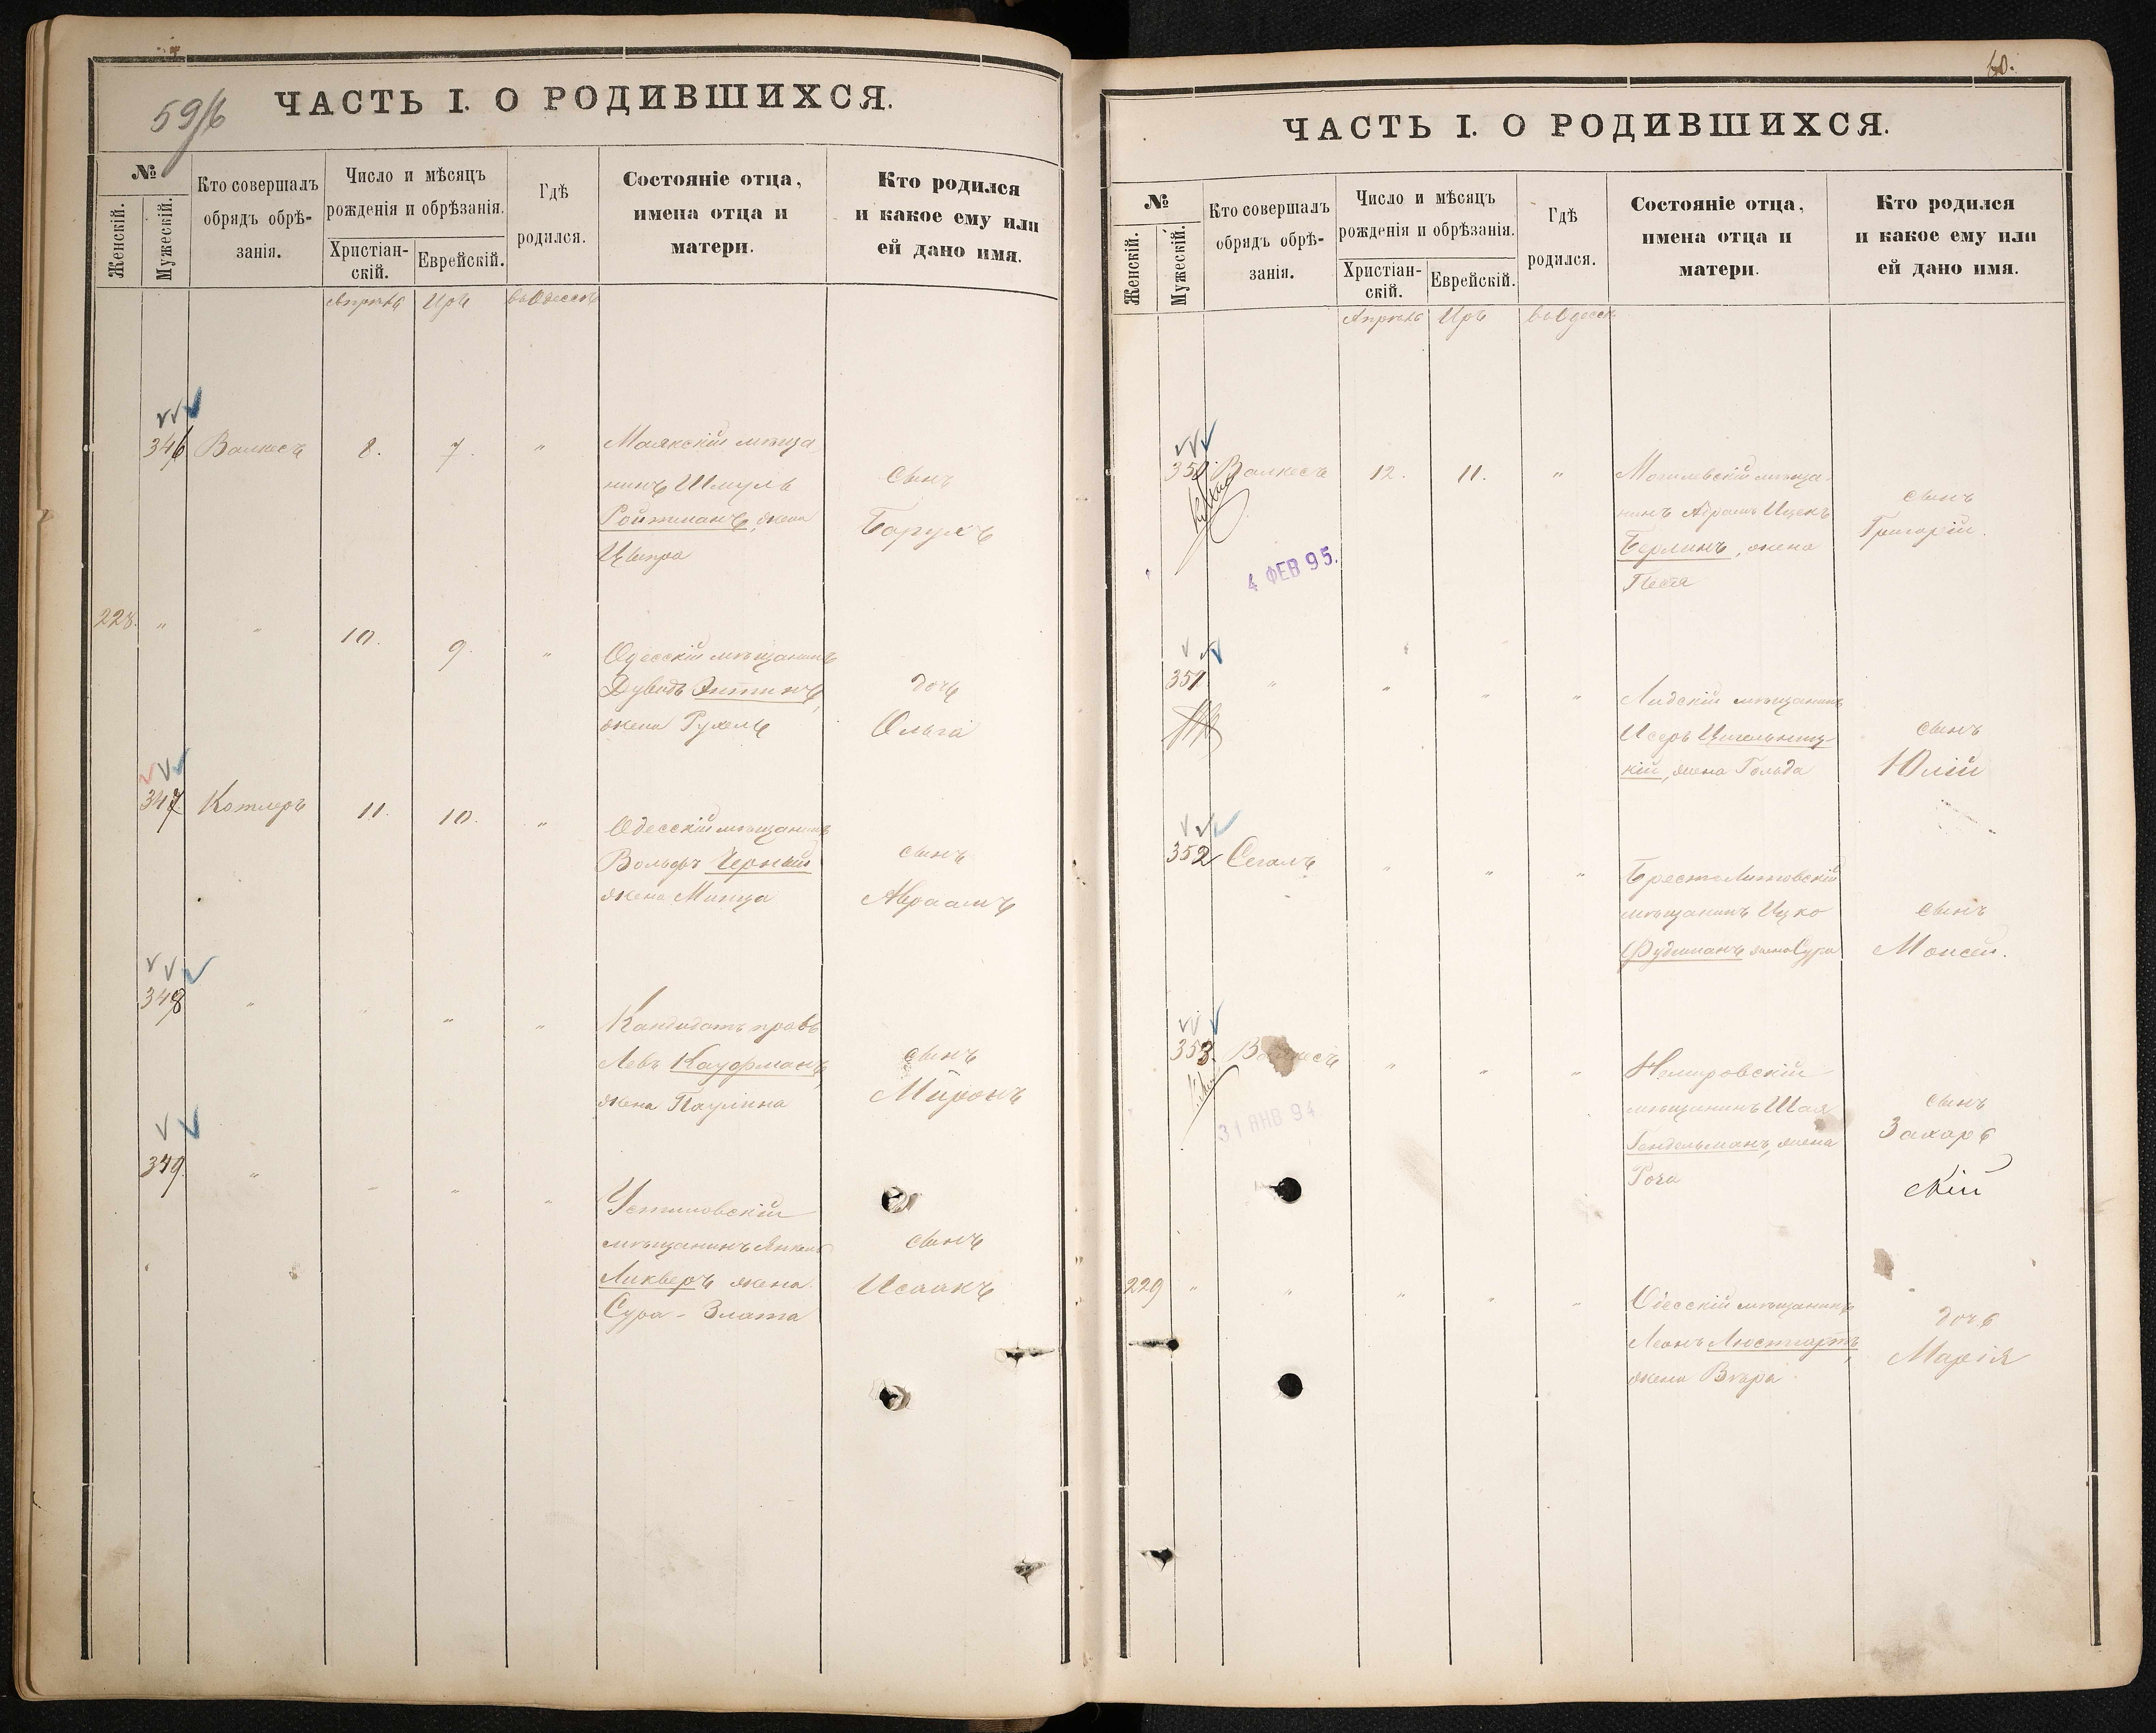 59/б
ЧАСТЬ I. О РОДИВШИХСЯ.
№
Женскій.
Мужескій.
Кто совершалъ
обрядъ обрѣ-
занія.
Число и мѣсяцъ
рожденія и обрѣзанія.
Христіан-
скій.
Еврейскій.
Гдѣ
родился.
Состояніе отца,
имена отца и
матери.
Кто родился
и какое ему или
ей дано имя.
Апрѣль Иръ въ Одессѣ
346 Валкесъ 8. 7. " Маякскій мѣща
нинъ Шмуль
Ройтманъ, жена
Цывра
сынъ
Барухъ
228. " " 10. 9. " Одесскій мѣщанинъ
Дувидъ Эттинъ,
жена Рухель
дочь
Ольга
347. Котлеръ 11. 10. " Одесскій мѣщанинъ
Вольфъ Черный
жена Минца
сынъ
Авраамъ
348 " " " " Кандидатъ правъ
Левъ Кауфманъ,
жена Паулина
сынъ
Миронъ
349. " " " " Устиновскій
мѣщанинъ Янкель
Ликверъ жена
Сура - Злата
сынъ
Исаакъ
60.
ЧАСТЬ I. О РОДИВШИХСЯ.
№
Женскій.
Мужескій.
Кто совершалъ
обрядъ обрѣ-
занія.
Число и мѣсяцъ
рожденія и обрѣзанія.
Христіан-
скій.
Еврейскій.
Гдѣ
родился.
Состояніе отца,
имена отца и
матери.
Кто родился
и какое ему или
ей дано имя.
Апрѣль Иръ въ Одессѣ
350. Валкесъ 12. 11. " Могилевскій мѣща-
нинъ Абрамъ Ицекъ
Берлинъ, жена
Песя
сынъ
Григорій.
4 ФЕВ 95.
351 " " " " Лидскій мѣщанинъ
Исеръ Цигельниц
кій, жена Гольда
сынъ
Юлій
352 Сегалъ " " " Брестъ Литовскій
мѣщанинъ Ицко
Фудиманъ жена Сура
сынъ
Моисей.
353. Валкесъ " " " Немировскій
мѣщанинъ Шая
Гендельманъ, жена
Роза
сынъ
Захарь
скій
31 ЯНВ 94
229 " " " " " Одесскій мѣщанинъ
Леонъ Люстгартъ,
жена Вѣра
дочь
Марія